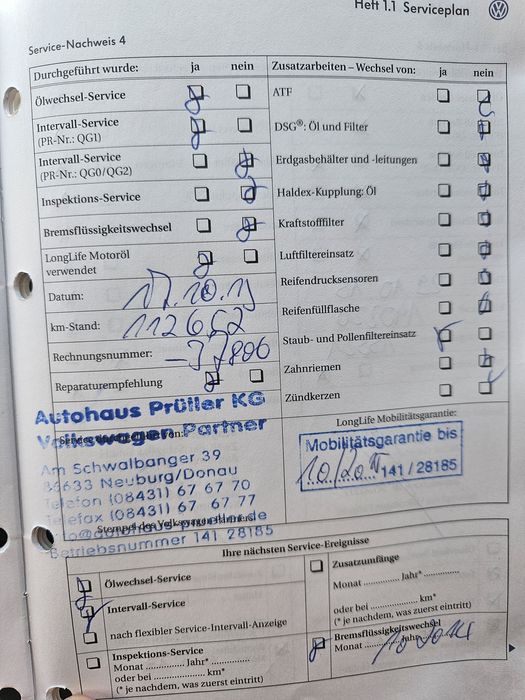 Heft 1.1 Serviceplan
Service-Nachweis 4
Durchgeführt wurde: ja nein
Ölwechsel-Service
Intervall-Service
(PR-Nr.: QG1)
Intervall-Service
(PR-Nr.: QG0/QG2)
Inspektions-Service
Bremsflüssigkeitswechsel
LongLife Motoröl
verwendet
Datum:
km-Stand: 112652
Rechnungsnummer: 37806
Reparaturempfehlung
Autohaus Prüller KG
Volkswagen Partner
Am Schwalbanger 39
86633 Neuburg/Donau
Telefon (08431) 67 67 70
Telefax (08431) 67 67 77
Stempel des Volkswagen Partners
Betriebsnummer 141 28185
Zusatzarbeiten – Wechsel von: ja nein
ATF
DSG®: Öl und Filter
Erdgasbehälter und -leitungen
Haldex-Kupplung: Öl
Kraftstofffilter
Luftfiltereinsatz
Reifendrucksensoren
Reifenfüllflasche
Staub- und Pollenfiltereinsatz
Zahnriemen
Zündkerzen
LongLife Mobilitätsgarantie:
Mobilitätsgarantie bis
10/20 141 / 28185
Ihre nächsten Service-Ereignisse
Ölwechsel-Service
Intervall-Service
nach flexibler Service-Intervall-Anzeige
Inspektions-Service
Monat ............ Jahr* ............
oder bei ............ km*
(* je nachdem, was zuerst eintritt)
Zusatzumfänge
Monat ............ Jahr* ............
oder bei ............ km*
(* je nachdem, was zuerst eintritt)
Bremsflüssigkeitswechsel
Monat